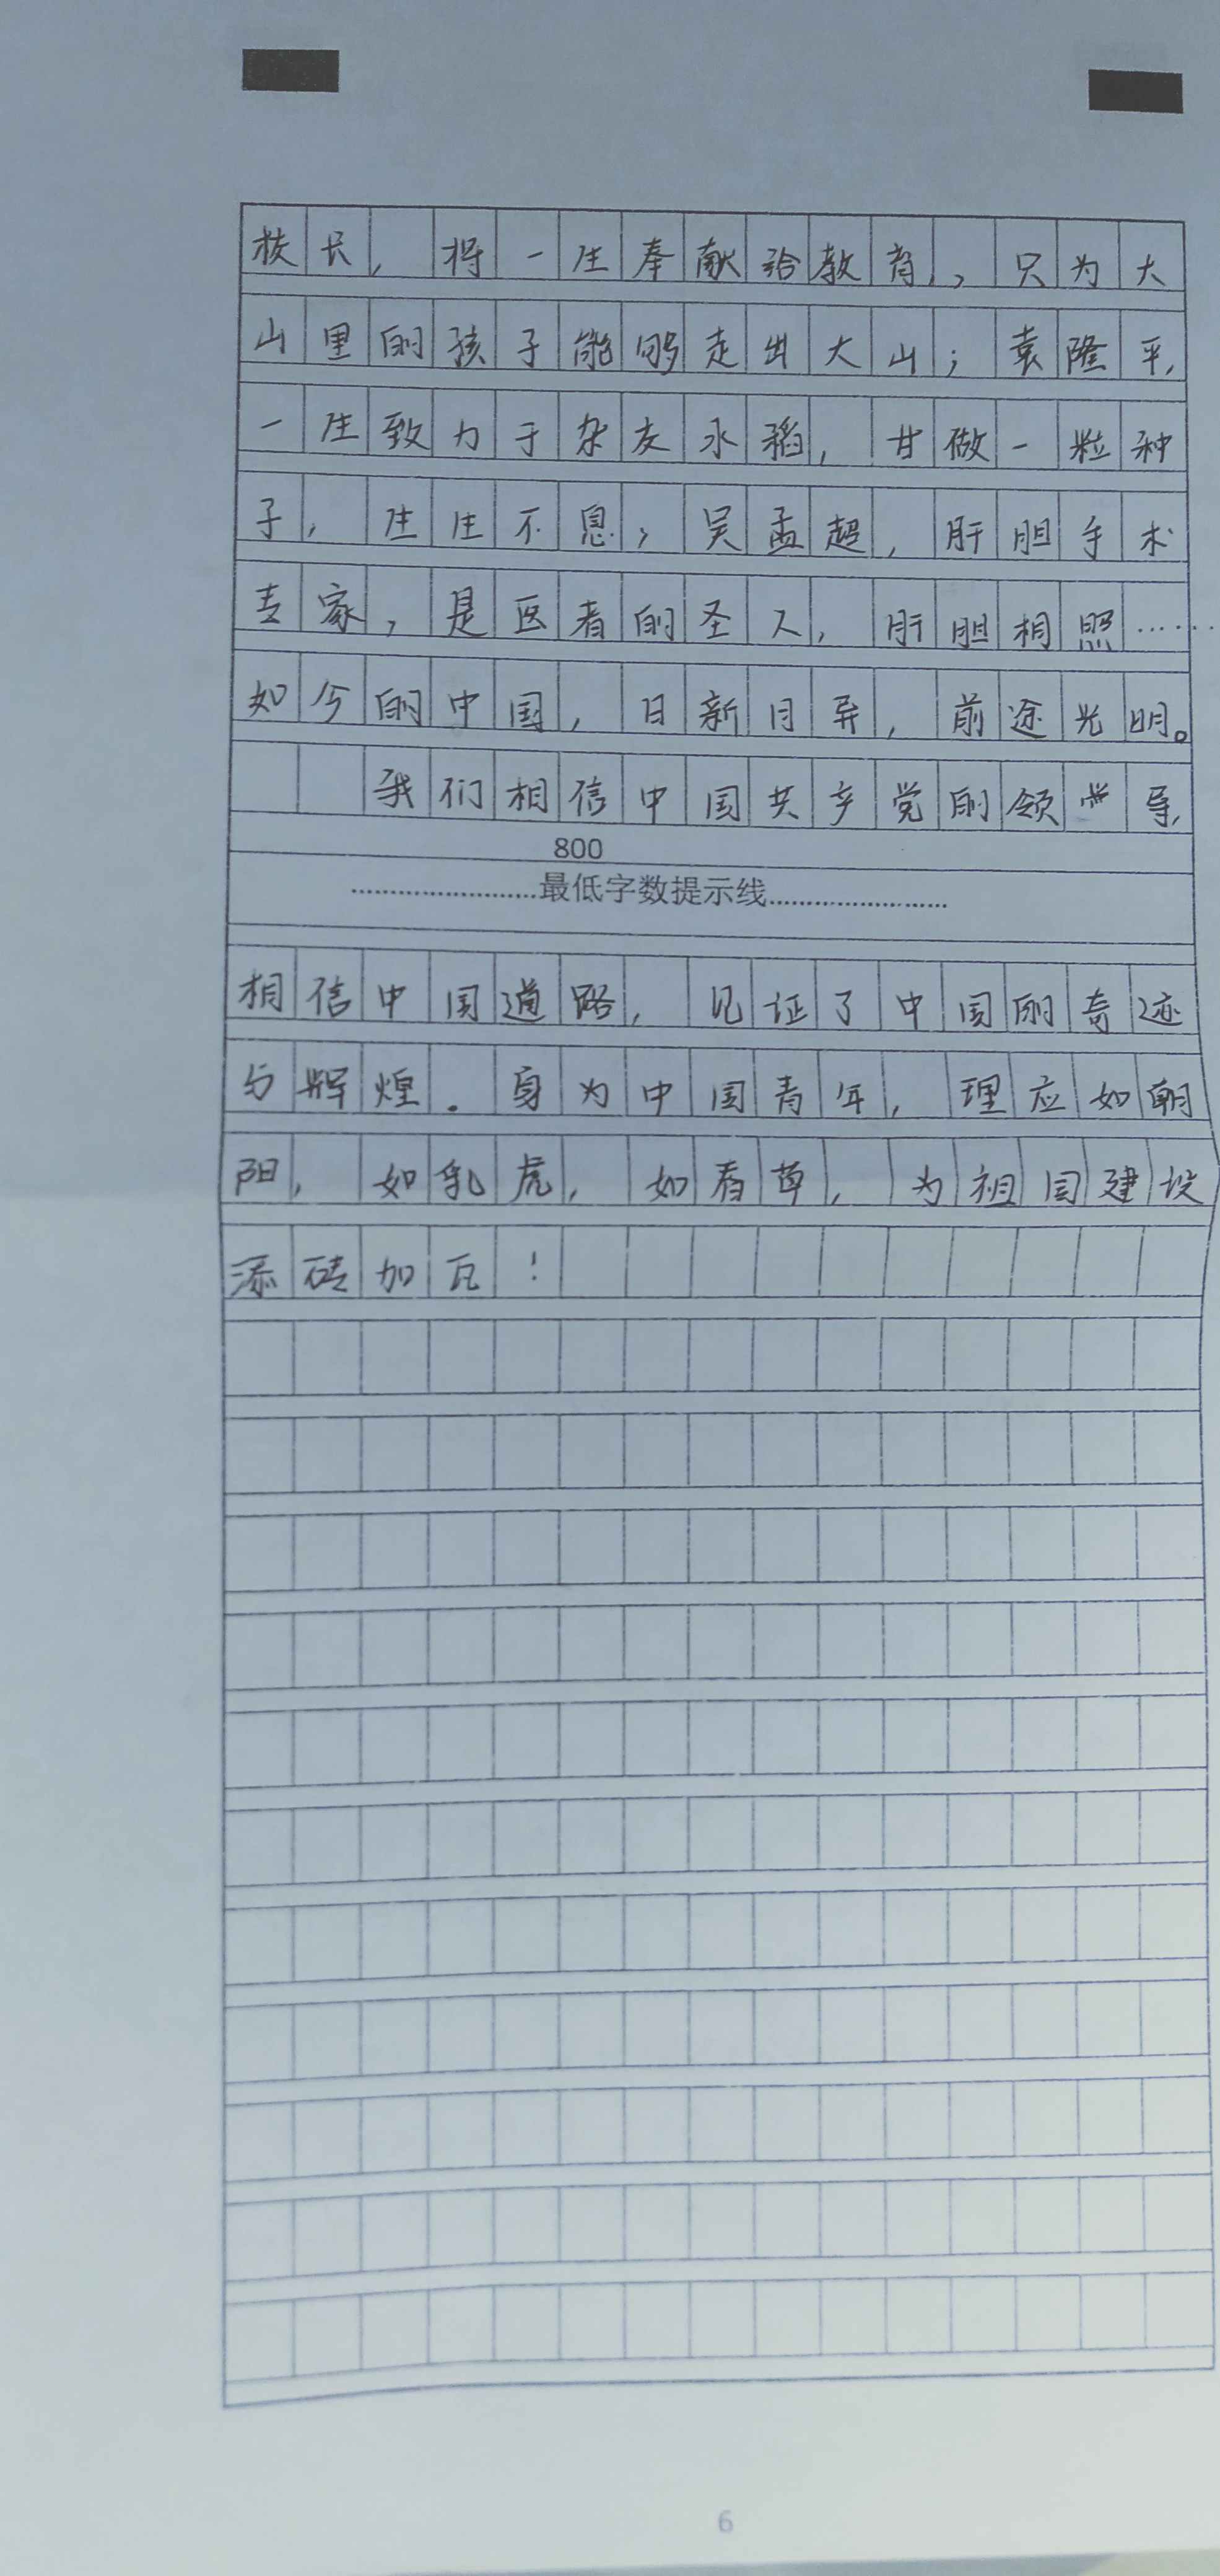 校长，将一生奉献给教育，只为大
山里的孩子能够走出大山；袁隆平，
一生致力于杂交水稻，甘做一粒种
子，生生不息；吴孟超，肝胆手术
专家，是医者的圣人，肝胆相照……
如今的中国，日新月异，前途光明。
我们相信中国共产党的领导，
800
........................最低字数提示线........................
相信中国道路，见证了中国的奇迹
与辉煌。身为中国青年，理应如朝
阳，如乳虎，如春草，为祖国建设
添砖加瓦！
6